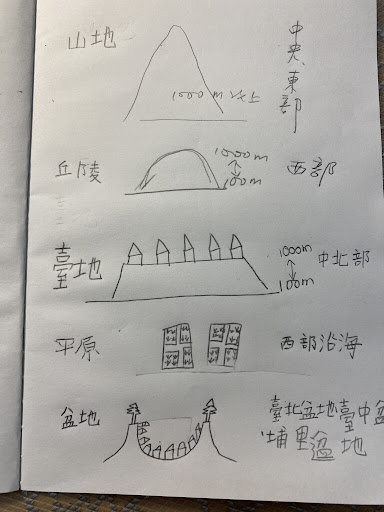 山地
1000m以上
中央、東部
丘陵
1000m
100m
西部
臺地
1000m
100m
中北部
平原
西部沿海
盆地
臺北盆地臺中盆
埔里盆地